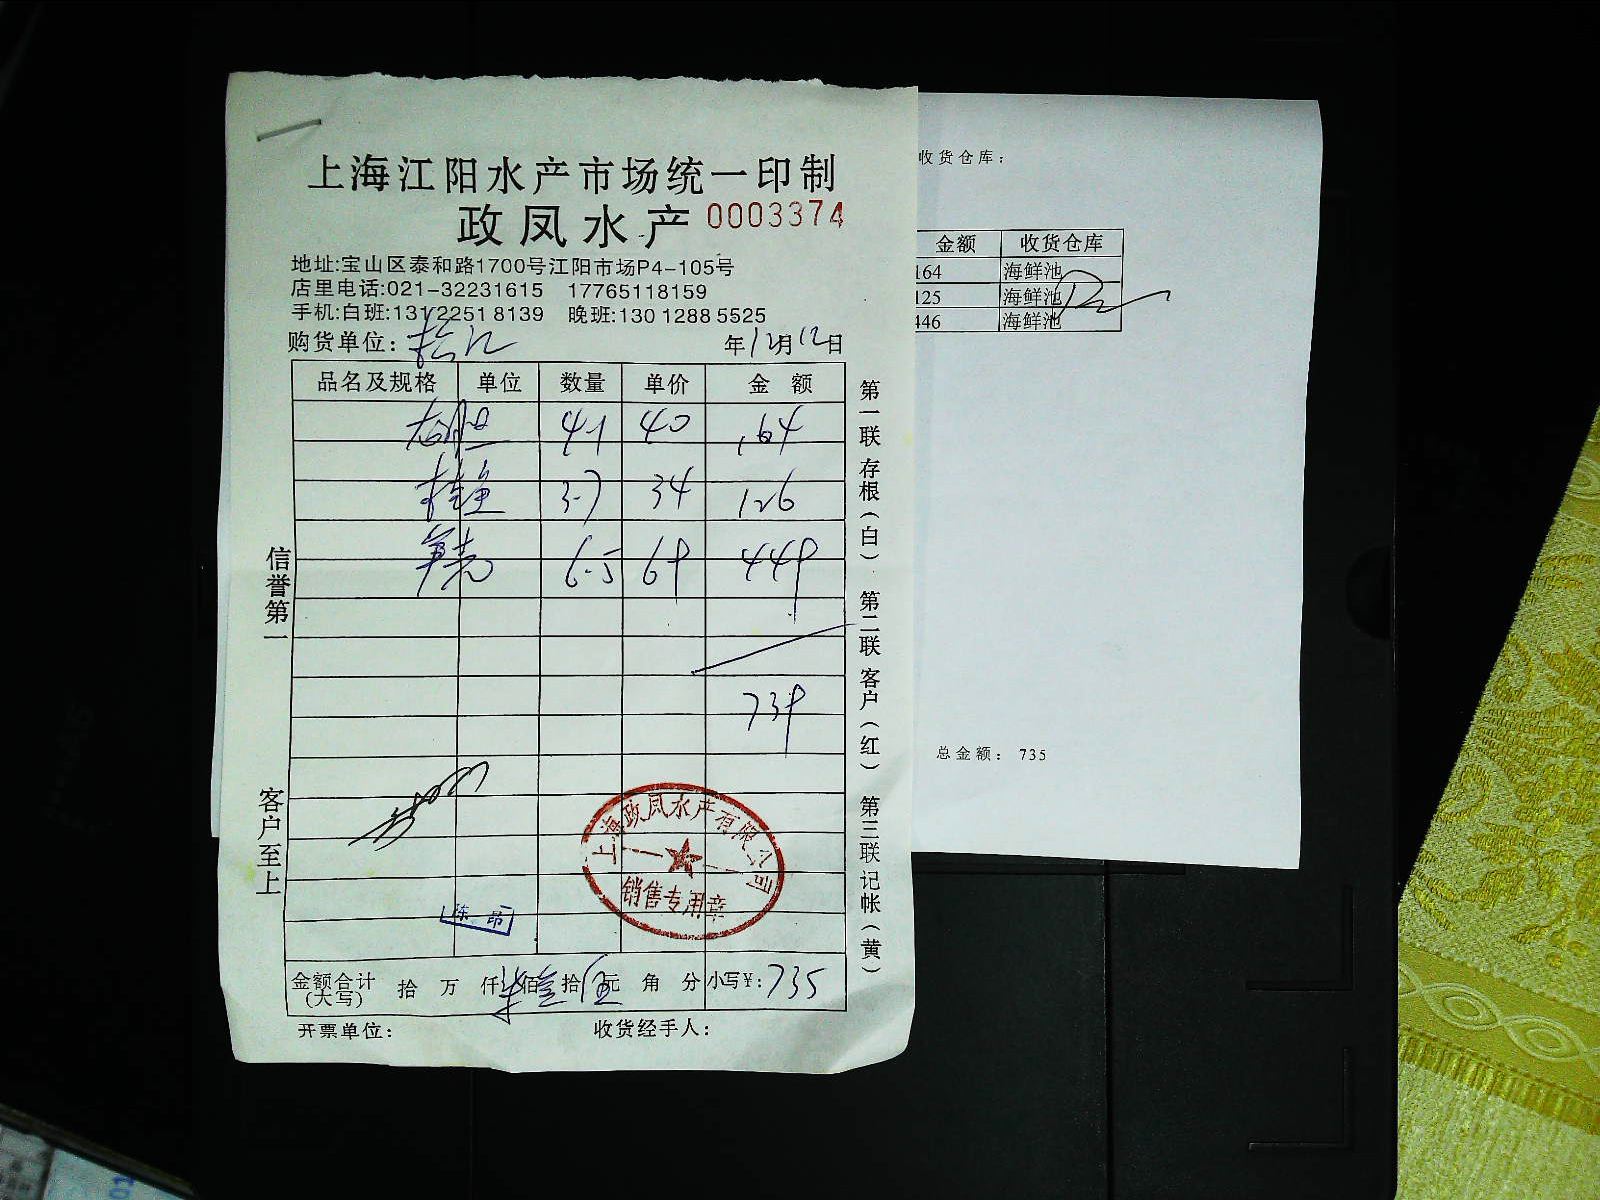 上海江阳水产市场统一印制
政凤水产 0003374
地址:宝山区泰和路1700号江阳市场P4-105号
店里电话:021-32231615 17765118159
手机:白班:131 2251 8139 晚班:130 1288 5525
购货单位: 年12月12日
品名及规格 单位 数量 单价 金 额
4.1 40 164
桂鱼 3.7 34 126
6.5 69 449
739
信誉第一
客户至上
第一联 存根(白) 第二联 客户(红) 第三联 记帐(黄)
上海政凤水产有限公司
销售专用章
陈昂
金额合计(大写) 拾 万 仟 柒佰叁拾伍元 角 分 小写¥:735
开票单位: 收货经手人:
收货仓库:
金额 收货仓库
164 海鲜池
125 海鲜池
446 海鲜池
总金额: 735